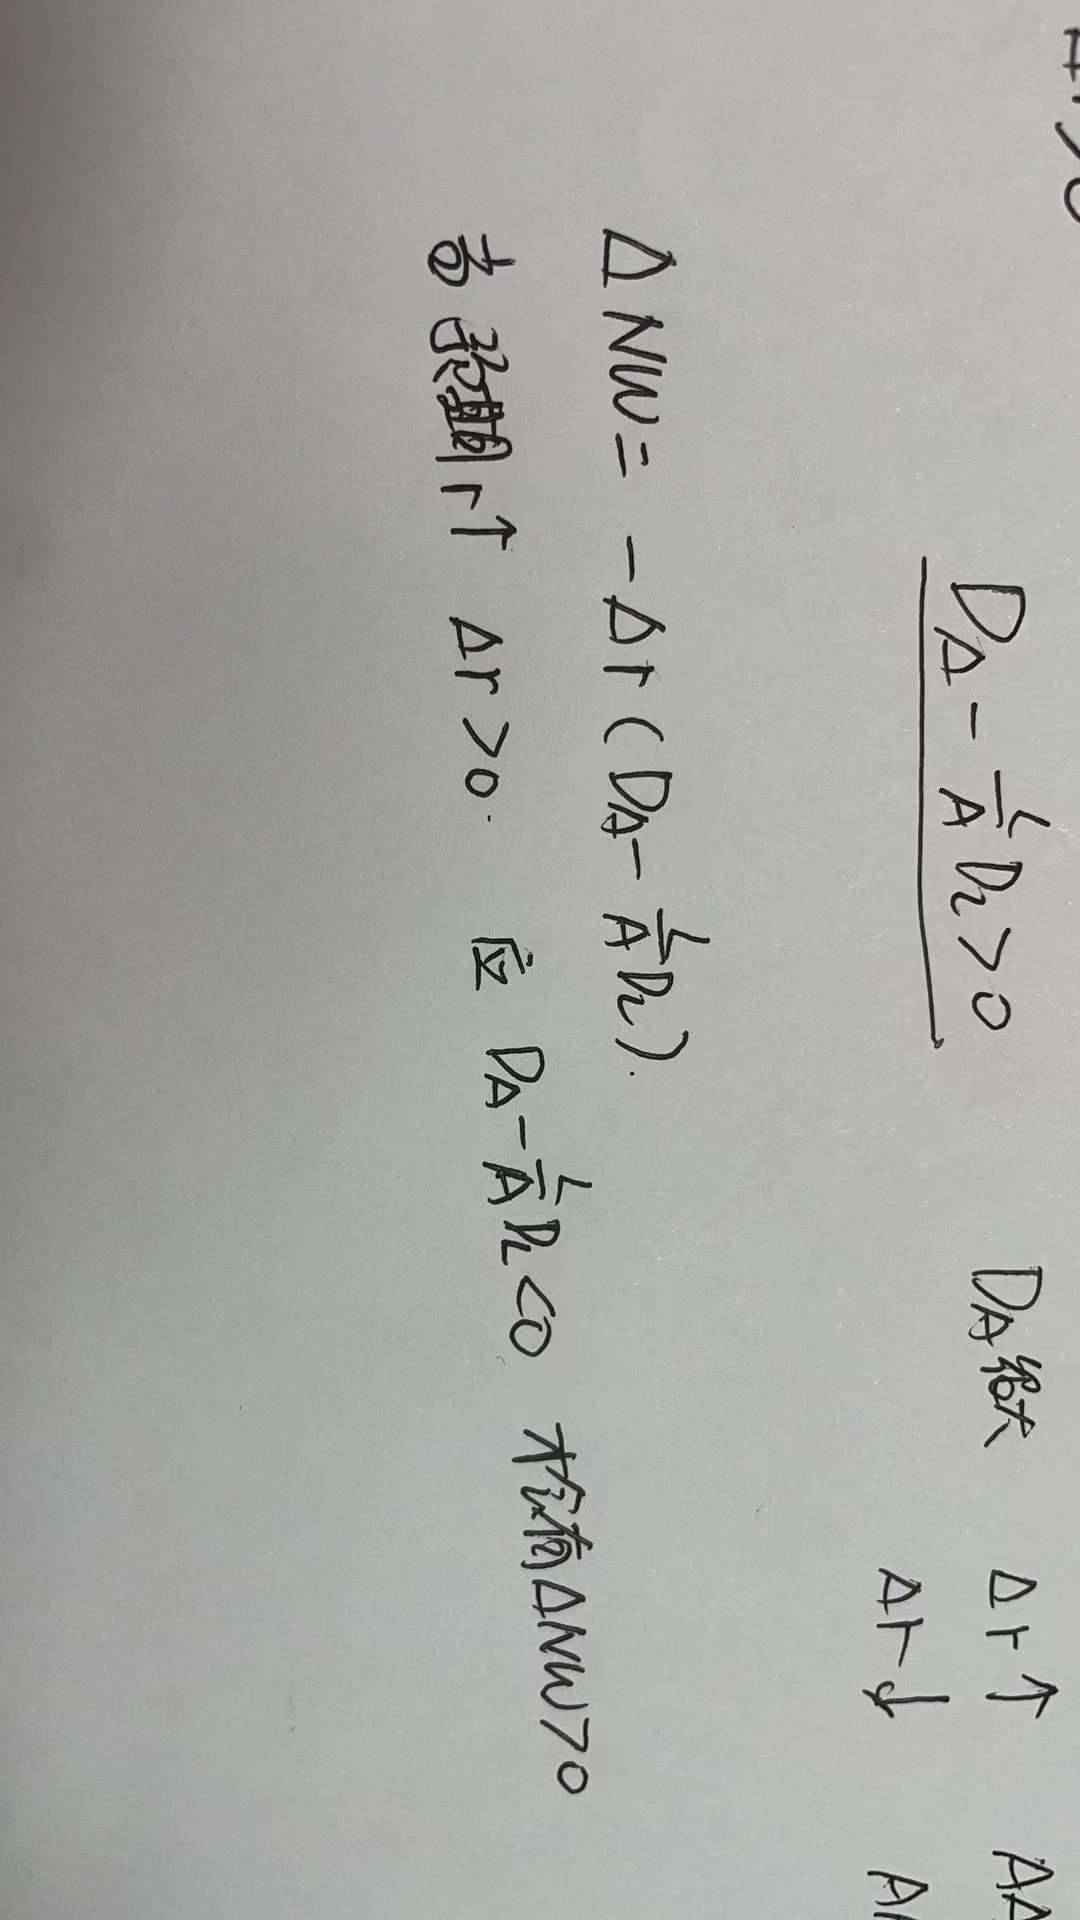 D_A - L/A D_L > 0 D_A Δr↑
Δr↓
ΔNW = -Δr(D_A - L/A D_L).
若 r↑ Δr>0. 应 D_A - L/A D_L <0 才会有ΔNW>0